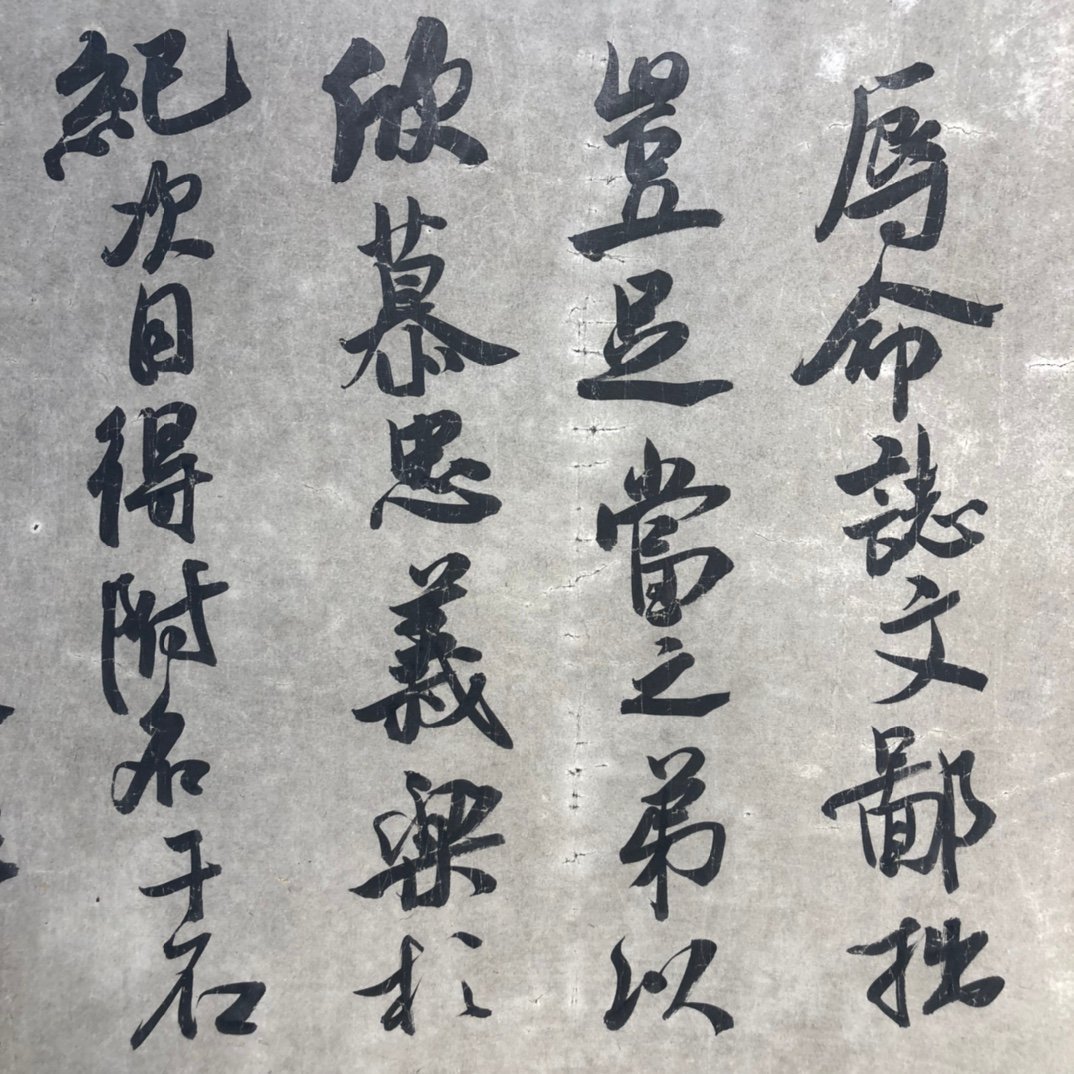 辱命誌文鄙拙
豈足當之弟以
欣慕忠義樂於
紀次目得附名于石